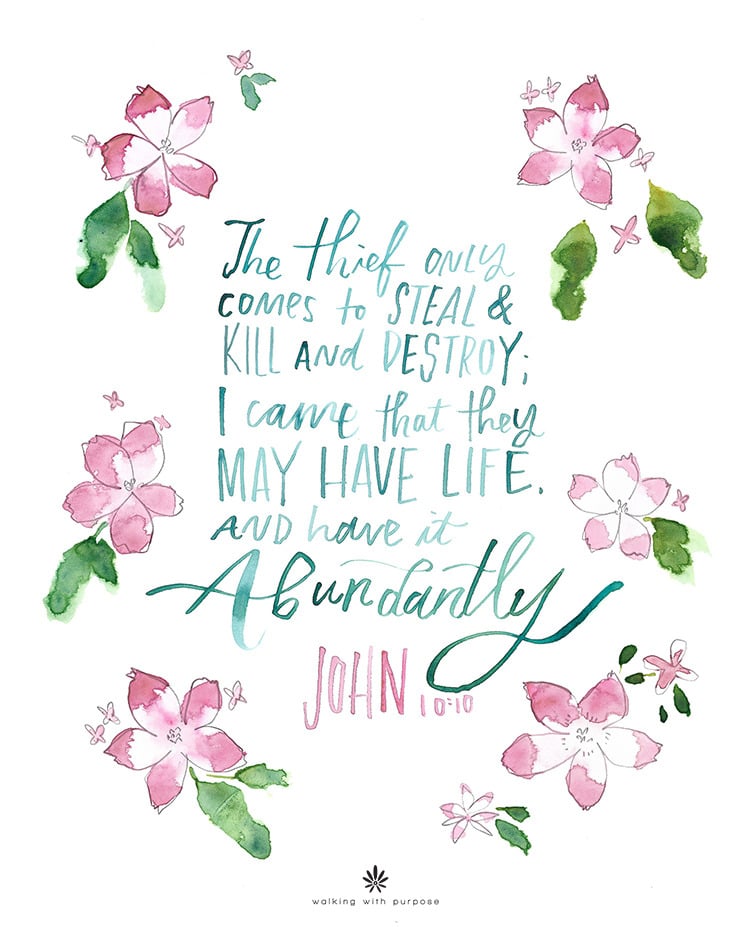 The thief ONLY
COMES to STEAL &
KILL AND DESTROY;
I came that they
MAY HAVE LIFE.
AND have it
Abundantly
JOHN 10:10
walking with purpose